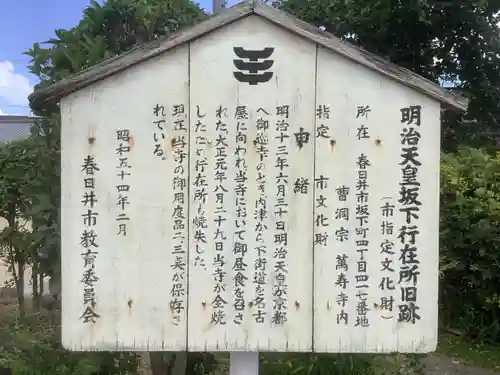 明治天皇坂下行在所旧跡
(市指定文化財)
所在 春日井市坂下町四丁目四二番地
曹洞宗 萬寿寺内
指定 市文化財
由緒
明治十三年六月三十日明治天皇が京都
へ御巡幸のとき内津から下街道を名古
屋に向われ当寺において御昼食を召さ
れた。大正元年八月二十九日当寺が全焼
したため行在所も焼失した。
現在、当寺の御用度品二、三点が保存さ
れている。
昭和五十四年二月
春日井市教育委員会